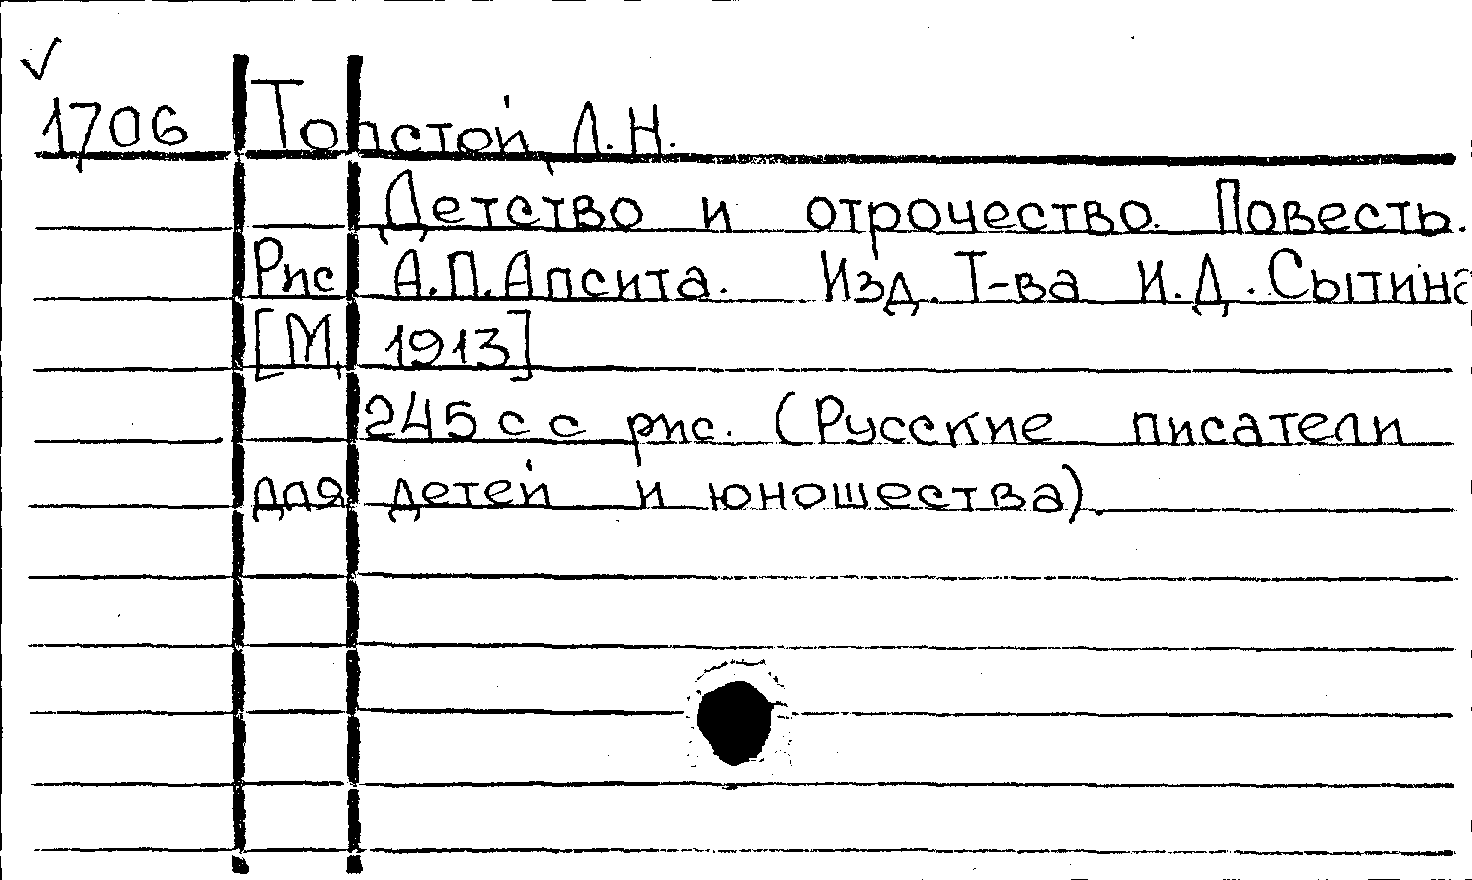 ✓
1706 Толстой, Л.Н.
Детство и отрочество. Повесть.
Рис А.П.Апсита. Изд. Т-ва И.Д.Сытина
[М, 1913]
245 с с рис. (Русские писатели
для детей и юношества).